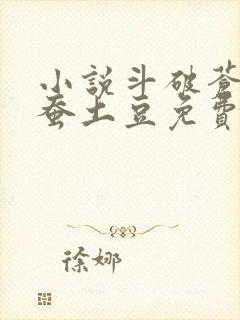 小説斗破蒼
蚕土豆免費
徐娜